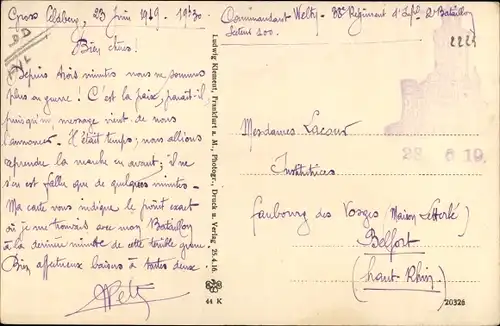 Gross Feldberg, 23 Juin 1919 - 19h30
Commandant Welty - 38e Régiment d'Infie 2e Bataillon
Secteur 200.
222
Bien chères!
Depuis trois minutes nous ne sommes
plus en guerre! C'est la paix, paraît-il
puisqu'un message vient de nous
l'annoncer. Il était temps; nous allions
reprendre la marche en avant; il ne
s'en est fallu que de quelques minutes -
Ma carte vous indique le point exact
où je me trouvais avec mon Bataillon
à la dernière minute de cette terrible guerre.
Bien affectueux baisers à toutes deux.
Welty
Ludwig Klement, Frankfurt a. M., Photogr., Druck u. Verlag 25.4.16.
44 K
23 6 19.
Mesdames Lacour
Institutrices
faubourg des Vosges (Maison
Belfort
(haut-Rhin)
20326